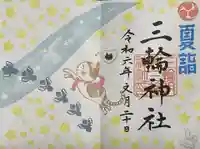 夏詣
三輪神社
令和六年文月二十日